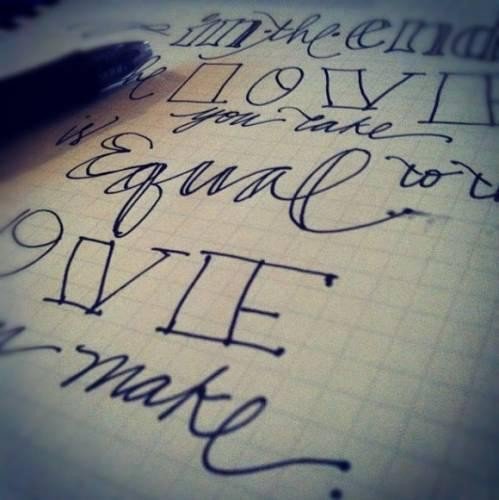 in the end
he LOVE
you take
is Equal to th
OVE
make.